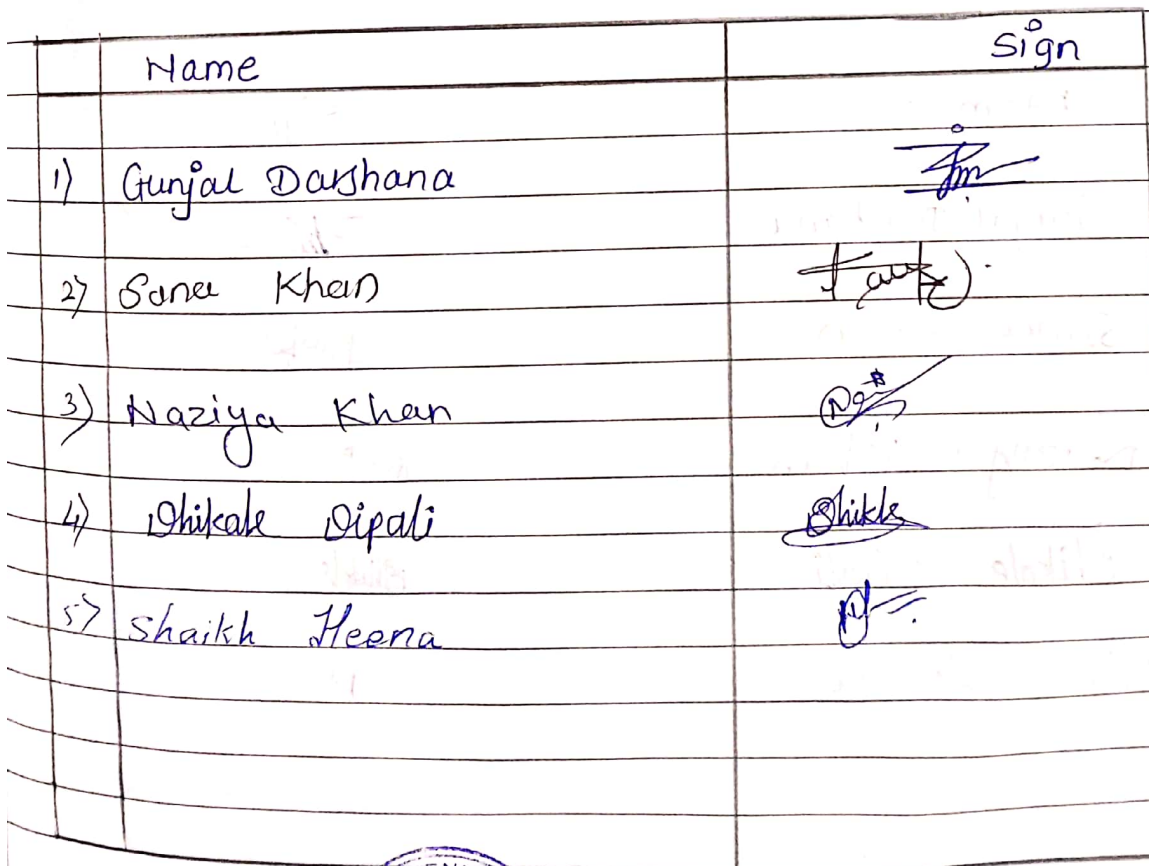 Name Sign
1) Gunjal Darshana
2) Sana Khan
3) Naziya Khan
4) Dhikale Dipali
5) Shaikh Heena